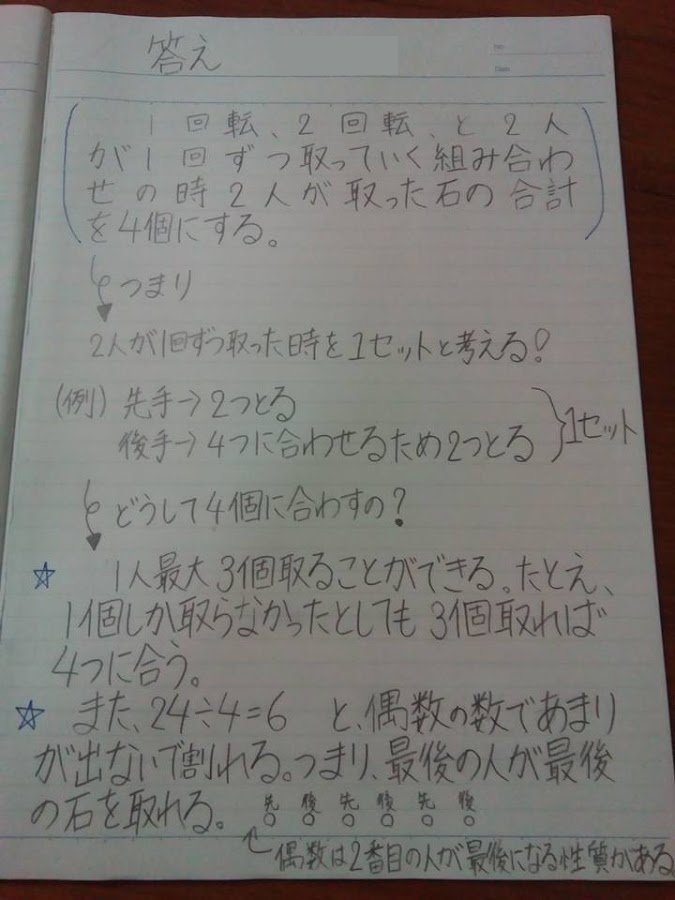 答え
No.
Date
1回転、2回転、と2人
が1回ずつ取っていく組み合わ
せの時2人が取った石の合計
を4個にする。
つまり
2人が1回ずつ取った時を1セットと考える!
(例) 先手→2つとる
後手→4つに合わせるため2つとる
1セット
どうして4個に合わすの?
☆ 1人最大3個取ることができる。たとえ、
1個しか取らなかったとしても3個取れば
4つに合う。
☆ また、24÷4=6 と、偶数の数であまり
が出ないで割れる。つまり、最後の人が最後
の石を取れる。
先 後 先 後 先 後
○ ○ ○ ○ ○ ○
偶数は2番目の人が最後になる性質がある